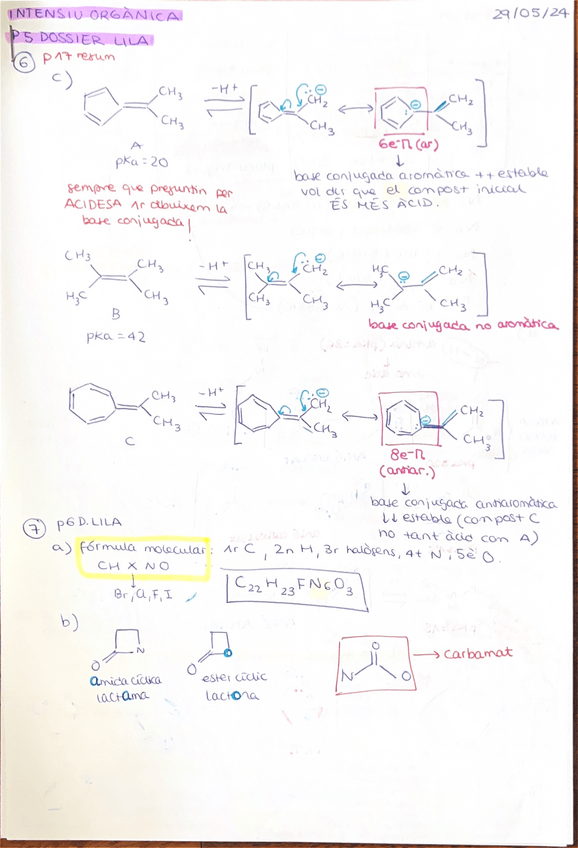 INTENSIU ORGÀNICA 29/05/24
P5 DOSSIER LILA
6 p17 resum
c)
CH3
CH3
A
pKa = 20
-H+
CH2
CH3
CH2
CH3
6e-π (ar)
base conjugada aromàtica ++ estable
vol dir que el compost inicial
ÉS MÉS ÀCID.
sempre que preguntin per
ACIDESA 1r dibuixem la
base conjugada!
CH3
CH3
H3C
CH3
B
pKa = 42
-H+
CH3
CH2
CH3
CH3
H3C
CH2
H3C
CH3
base conjugada no aromàtica
CH3
CH3
C
-H+
CH2
CH3
CH2
CH3
8e-π
(antiar.)
base conjugada antiaromàtica
↓↓ estable (compost C
no tant àcid con A)
7 p6 D. LILA
a) fórmula molecular: 1r C, 2n H, 3r halògens, 4t N, 5è O.
CH X NO
Br, Cl, F, I
C22 H23 F N6 O3
b)
N
O
O
O
O
N
O
carbamat
amida cíclica
lactama
ester cíclic
lactona